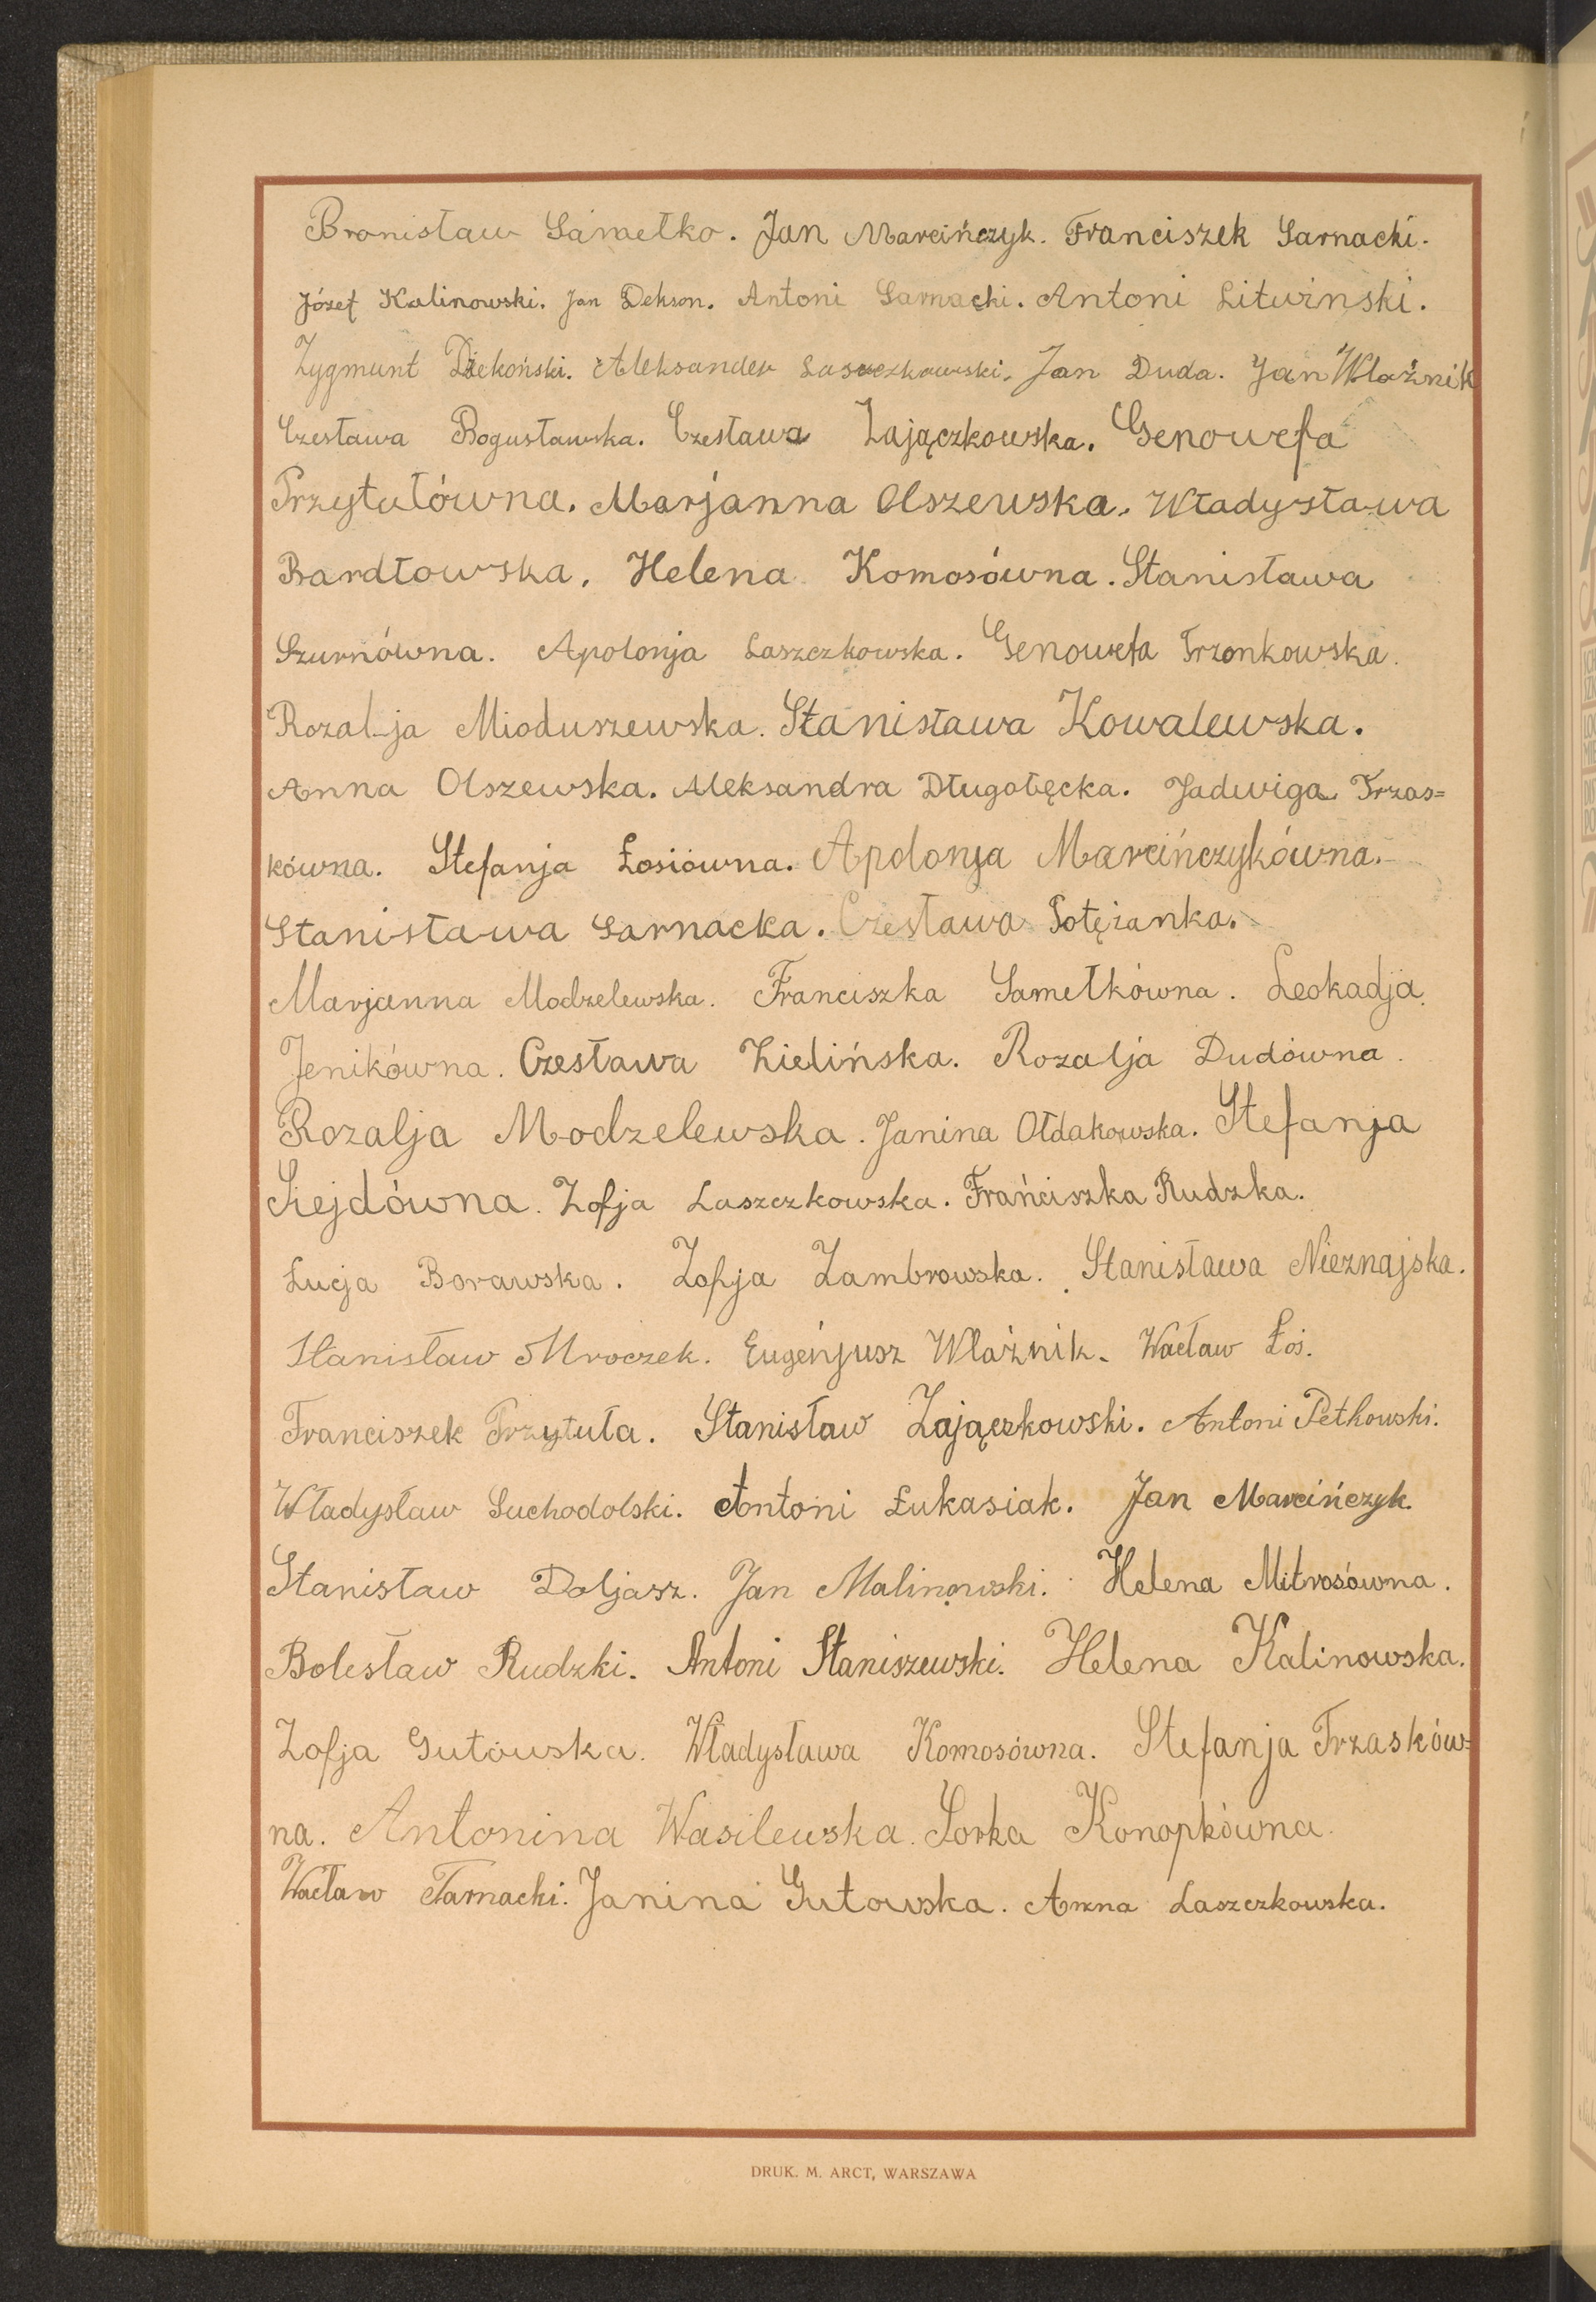 Bronisław Sámełko. Jan Marcińczyk. Franciszek Sarnacki.
Józef Kalinowski. Jan Dekson. Antoni Sarnacki. Antoni Litwinski.
Zygmunt Dziekoński. Aleksander Laszczkowski. Jan Duda. Jan Wlaźnik
Czesława Bogusławska. Czesława Zajączkowska. Genowefa
Przytułówna. Marjanna Olszewska. Władysława
Bardłowska. Helena Komosówna. Stanisława
Szurnówna. Apolonja Laszczkowska. Genowefa Trzonkowska.
Rozalja Mioduszewska. Stanisława Kowalewska.
Anna Olszewska. Aleksandra Długołęcka. Jadwiga Trzas=
kówna. Stefanja Łosiówna. Apolonja Marcińczykówna.
Stanisława Sarnacka. Czesława Potężanka.
Marjanna Modzelewska. Franciszka Samełkówna. Leokadja
Jenikówna. Czesława Zielińska. Rozalja Dudówna.
Rozalja Modzelewska. Janina Ołdakowska. Stefanja
Siejdówna. Zofja Laszczkowska. Frańciszka Rudzka.
Łucja Borawska. Zofja Zambrowska. Stanisława Nieznajska.
Stanisław Mroczek. Eugenjusz Wlaźnik. Wacław Łoś.
Franciszek Przytuła. Stanisław Zajączkowski. Antoni Petkowski.
Władysław Suchodolski. Antoni Łukasiak. Jan Marcińczyk.
Stanisław Doljasz. Jan Malinowski. Helena Mitrosówna.
Bolesław Rudzki. Antoni Staniszewski. Helena Kalinowska.
Zofja Gutowska. Władysława Komosówna. Stefanja Trzasków=
na. Antonina Wasilewska. Sorka Konopkówna.
Wacław Tarnacki. Janina Gutowska. Anna Laszczkowska.
DRUK. M. ARCT, WARSZAWA